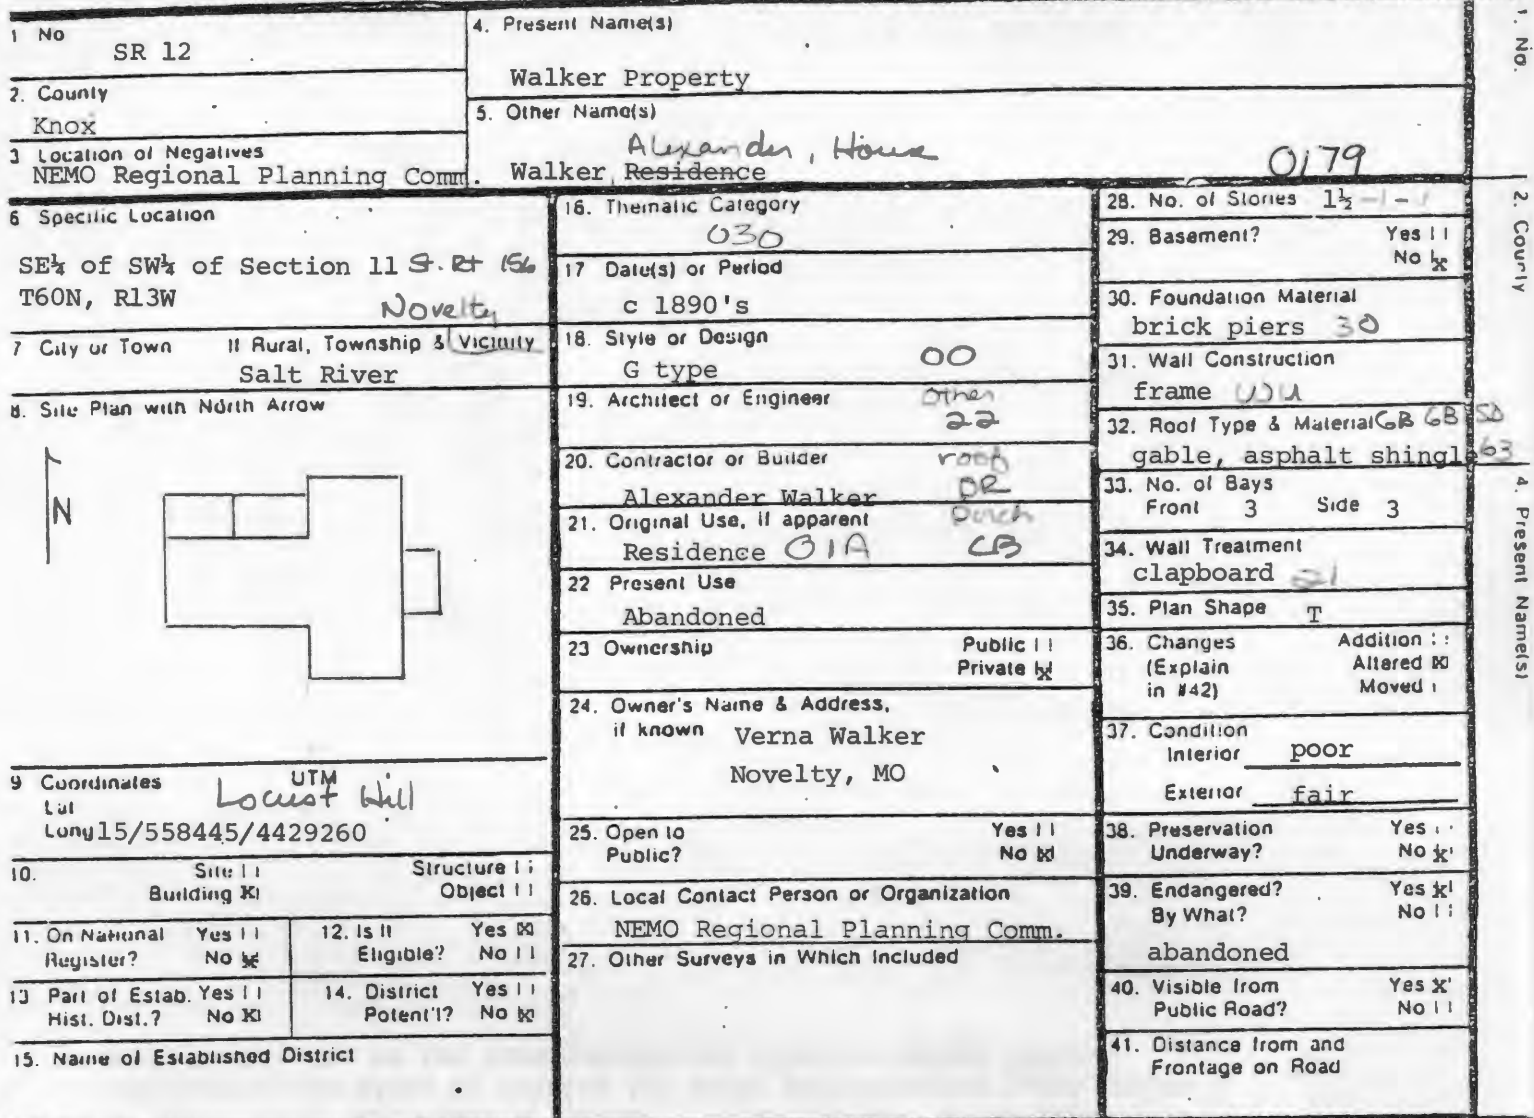 1 No
SR 12
2. County
Knox
3 Location of Negatives
NEMO Regional Planning Comm.
4. Present Name(s)
Walker Property
5. Other Name(s)
Alexander, House
Walker, Residence
0179
6 Specific Location
SE¼ of SW¼ of Section 11 St. Rt 156
T60N, R13W
Novelty
7 City or Town If Rural, Township & Vicinity
Salt River
8. Site Plan with North Arrow
N
9 Coordinates UTM
Locust Hill
Lat
Long 15/558445/4429260
10. Site | | Structure | |
Building X| Object | |
11. On National Yes | |
Register? No X
12. Is It Yes X
Eligible? No | |
13 Part of Estab. Yes | |
Hist. Dist.? No X|
14. District Yes | |
Potent'l? No X
15. Name of Established District
16. Thematic Category
030
17 Date(s) or Period
c 1890's
18. Style or Design
G type 00
19. Architect or Engineer Other
22
20. Contractor or Builder roof
Alexander Walker DR
21. Original Use, if apparent Porch
Residence 01A CB
22 Present Use
Abandoned
23 Ownership Public | |
Private X
24. Owner's Name & Address,
if known Verna Walker
Novelty, MO
25. Open to Yes | |
Public? No X
26. Local Contact Person or Organization
NEMO Regional Planning Comm.
27. Other Surveys in Which Included
28. No. of Stories 1½ -1-1
29. Basement? Yes | |
No X
30. Foundation Material
brick piers 30
31. Wall Construction
frame WU
32. Roof Type & Material GB GB SD
gable, asphalt shingle 63
33. No. of Bays
Front 3 Side 3
34. Wall Treatment
clapboard 21
35. Plan Shape T
36. Changes Addition | |
(Explain Altered X
in #42) Moved |
37. Condition
Interior poor
Exterior fair
38. Preservation Yes | |
Underway? No X
39. Endangered? Yes X
By What? No | |
abandoned
40. Visible from Yes X
Public Road? No | |
41. Distance from and
Frontage on Road
1. No.
2. County
4. Present Name(s)